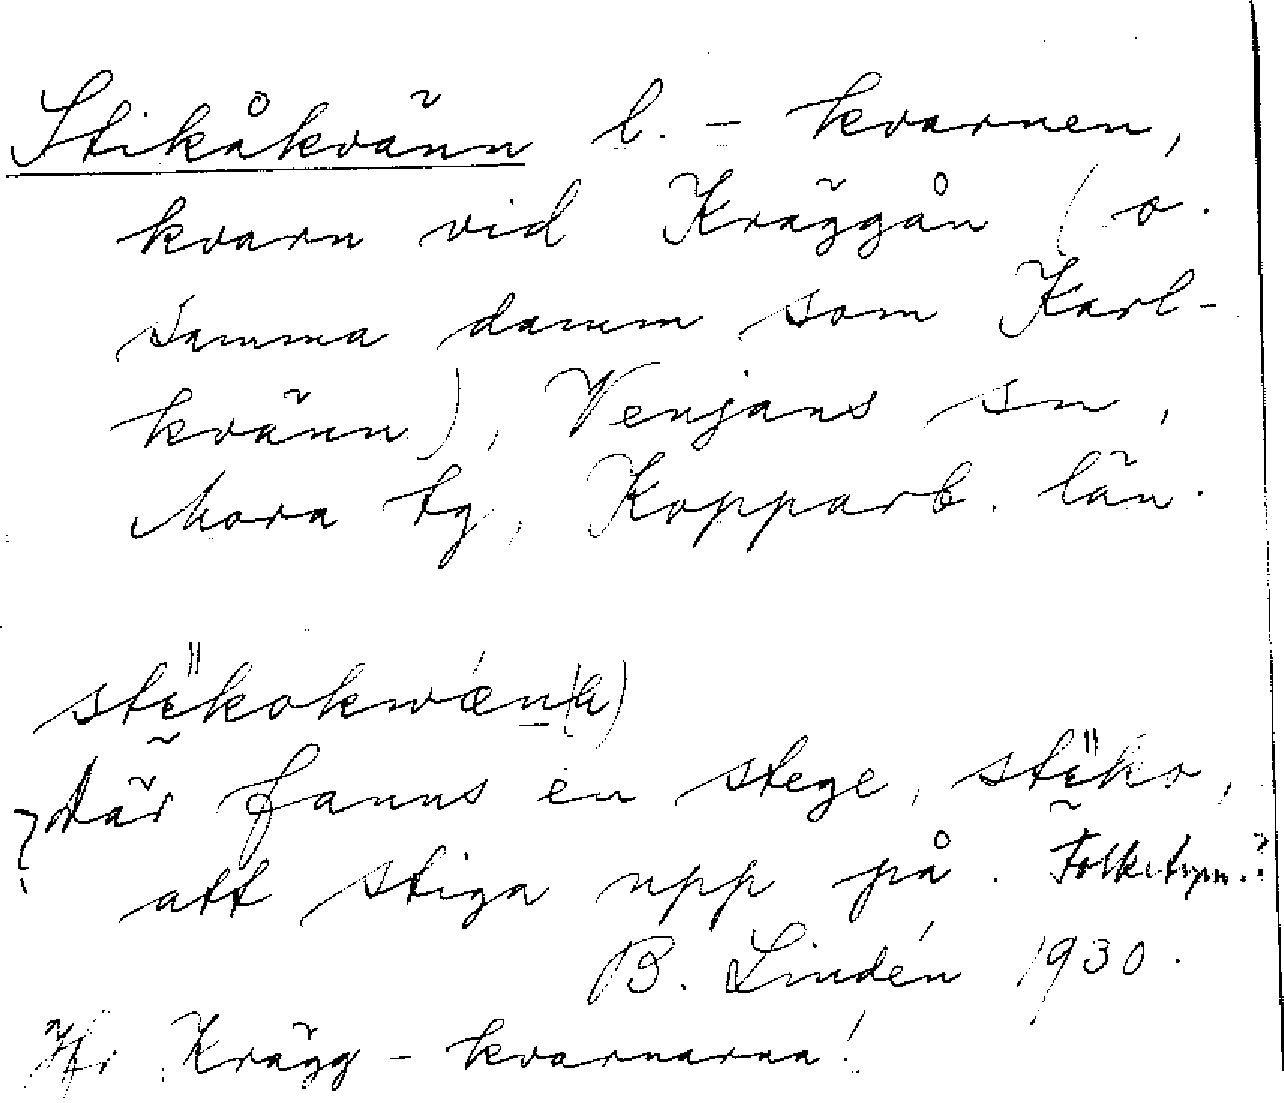 Stikåkvänn l. - kvarnen,
kvarn vid Kräggån (o.
samma damm som Karl-
kvänn), Venjans sn,
Mora tg, Kopparb. län.
stikokwæn(a)
där fanns en stege, stiko,
att stiga upp på. Folketym.?
B. Lindén 1930.
Jfr Krägg-kvarnarna!